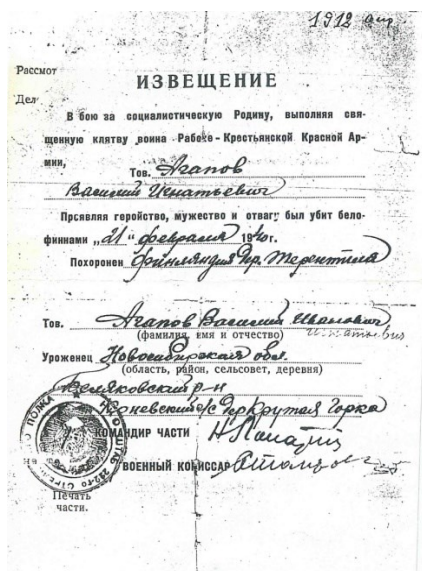 1912
Рассмот
Дел
ИЗВЕЩЕНИЕ
В бою за социалистическую Родину, выполняя свя-
щенную клятву воина Рабоче-Крестьянской Красной Ар-
мии,
Тов. Агапов
Василий Игнатьевич
Проявляя геройство, мужество и отвагу был убит бело-
финнами „21" февраля 1940г.
Похоронен Финляндия
Тов. Агапов Василий Иванович
(фамилия, имя и отчество)
Игнатьевич
Уроженец Новосибирская обл.
(область, район, сельсовет, деревня)
р-н
с/с Крутая Горка
КОМАНДИР ЧАСТИ
ВОЕННЫЙ КОМИССАР
ШТАБ
ПОЛКА
Печать
части.